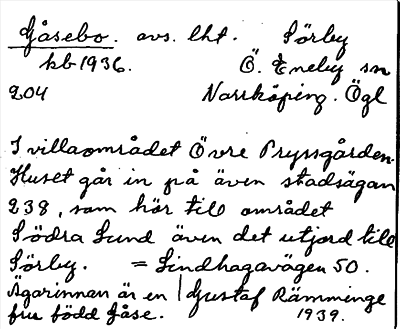 Gåsebo. avs. lht. Sörby
kb 1936. Ö. Eneby sn
204 Norrköping. Ögl
I villaområdet Övre Pryssgården.
Huset går in på även stadsägan
238, som hör till området
Södra Lund även det utjord till
Sörby. = Lindhagavägen 50.
Ägarinnan är en | Gustaf Rämminge
fru född Gåse. 1939.